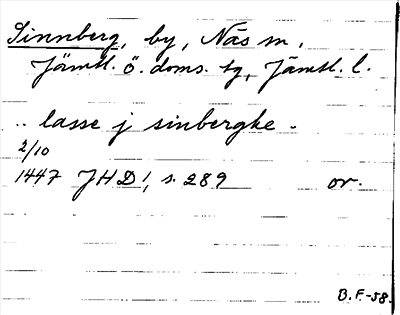 Sinnberg, by, Näs sn,
Jämtl. ö. doms. tg, Jämtl. l.
.. lasse j sinberghe .
2/10
1447 JHD 1, s. 289 or.
B.F.-58.